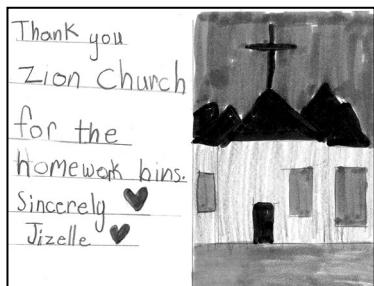 Thank you
Zion Church
for the
homework bins.
Sincerely
Jizelle